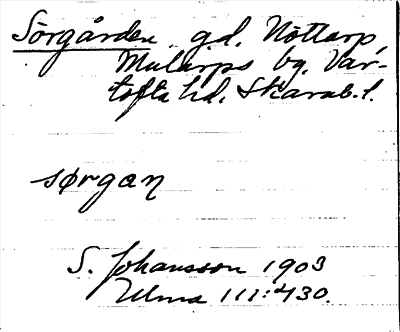 Sörgården gd. Nöttorp,
Mularps by, Var-
tofta hd. Skarab. l.
sørgan
S. Johansson 1903
Ulma 111:430.